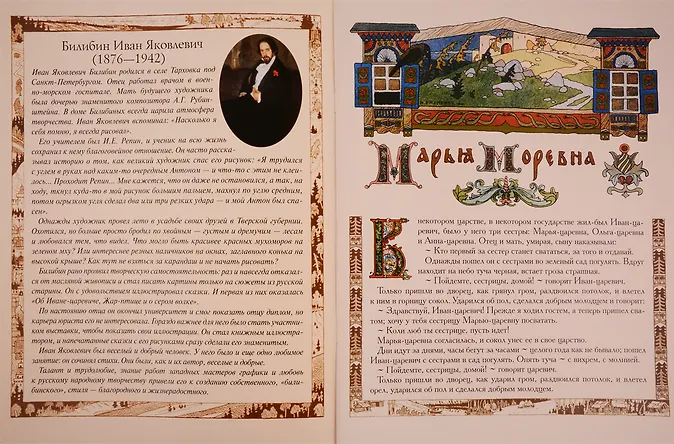 Билибин Иван Яковлевич
(1876—1942)
Иван Яковлевич Билибин родился в селе Тарховка под
Санкт-Петербургом. Отец работал врачом в воен-
но-морском госпитале. Мать будущего художника
была дочерью знаменитого композитора А.Г. Рубин-
штейна. В доме Билибиных всегда царила атмосфера
творчества. Иван Яковлевич вспоминал: «Насколько я
себя помню, я всегда рисовал».
Его учителем был И.Е. Репин, и ученик на всю жизнь
сохранил к нему благоговейное отношение. Он часто расска-
зывал историю о том, как великий художник спас его рисунок: «Я трудился
с углем в руках над каким-то очередным Антоном — и что-то с этим не клеи-
лось... Проходит Репин... Мне кажется, что он даже не остановился, а так, на
ходу, ткнул куда-то в мой рисунок большим пальцем, махнул по углю средним,
потом огрызком угля сделал два или три резких удара — и мой Антон был спа-
сен».
Однажды художник провел лето в усадьбе своих друзей в Тверской губернии.
Охотился, но больше просто бродил по хвойным — густым и дремучим — лесам
и любовался тем, что видел. Что могло быть красивее красных мухоморов на
зеленом мху? Или интереснее резных наличников на окнах, изящного конька на
высокой крыше? Как тут не взяться за карандаш и не начать рисовать?
Билибин рано проявил творческую самостоятельность: раз и навсегда отказал-
ся от масляной живописи и стал писать картины только на сюжеты из русской
старины. Он с удовольствием иллюстрировал сказки. И первая из них оказалась
«Об Иване-царевиче, Жар-птице и о сером волке».
По настоянию отца он окончил университет и смог показать отцу диплом, но
карьера юриста его не интересовала. Гораздо важнее для него было стать участни-
ком выставки, чтобы показать свои иллюстрации. Он стал книжным иллюстра-
тором, и напечатанные сказки с его рисунками сразу сделали его знаменитым.
Иван Яковлевич был веселый и добрый человек. У него было и еще одно любимое
занятие: он сочинял стихи. Они были, как и их автор, веселые и добрые.
Талант и трудолюбие, знание работ западных мастеров графики и любовь
к русскому народному творчеству привели его к созданию собственного, «били-
бинского», стиля — благородного и жизнерадостного.
Марья Моревна
В некотором царстве, в некотором государстве жил-был Иван-ца-
ревич, было у него три сестры: Марья-царевна, Ольга-царевна
и Анна-царевна. Отец и мать, умирая, сыну наказывали:
~ Кто первый за сестер станет свататься, за того и отдавай.
Однажды пошел он с сестрами во зеленый сад погулять. Вдруг
находит на небо туча черная, встает гроза страшная.
~ Пойдемте, сестрицы, домой! ~ говорит Иван-царевич.
Только пришли во дворец, как грянул гром, раздвоился потолок, и влетел
к ним в горницу сокол. Ударился об пол, сделался добрым молодцем и говорит:
~ Здравствуй, Иван-царевич! Прежде я ходил гостем, а теперь пришел сва-
том; хочу у тебя сестрицу Марью-царевну посватать.
~ Коли люб ты сестрице, пусть идет!
Марья-царевна согласилась, и сокол унес ее в свое царство.
Дни идут за днями, часы бегут за часами ~ целого года как не бывало; пошел
Иван-царевич с сестрами в сад погулять. Опять туча ~ с вихрем, с молнией.
~ Пойдемте, сестрицы, домой! ~ говорит царевич.
Только пришли во дворец, как ударил гром, раздвоился потолок, и влетел
орел, ударился об пол и сделался добрым молодцем.